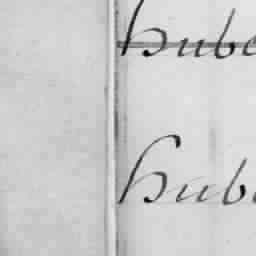 Hube
Hube